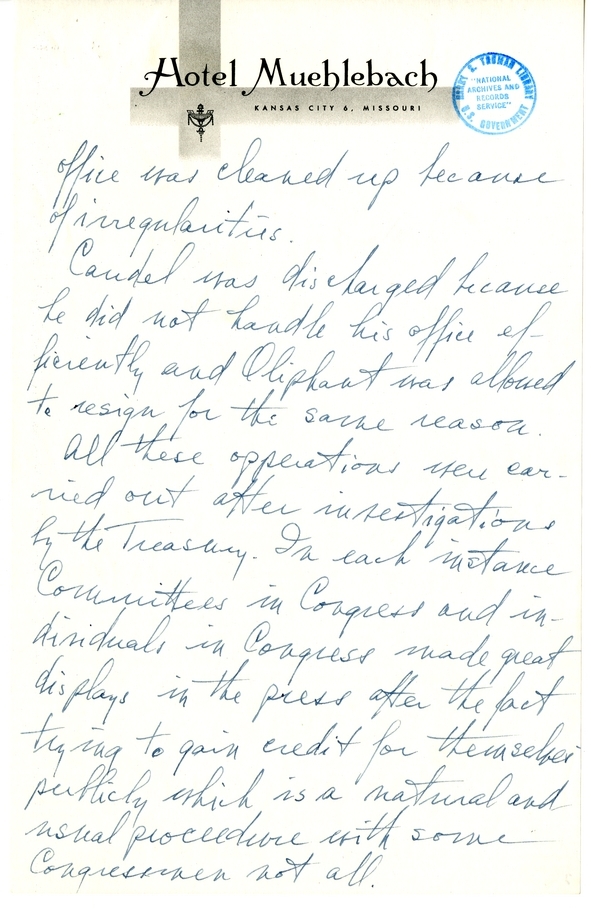 Hotel Muehlebach
KANSAS CITY 6, MISSOURI
HARRY S. TRUMAN LIBRARY
"NATIONAL
ARCHIVES AND
RECORDS
SERVICE"
U.S. GOVERNMENT
office was cleaned up because
of irregularities.
Caudel was discharged because
he did not handle his office ef-
ficiently and Oliphant was allowed
to resign for the same reason.
All these opperations were car-
ried out after investigations
by the Treasury. In each instance
Committees in Congress and in-
dividuals in Congress made great
displays in the press after the fact
trying to gain credit for themselves
publicly which is a natural and
usual proceedure with some
Congressmen not all.